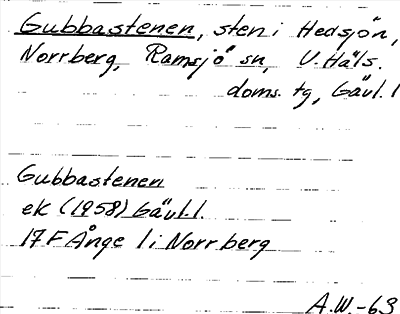 Gubbastenen, sten i Hedsjön,
Norrberg, Ramsjö sn, V. Häls.
doms. tg, Gävl. l
Gubbastenen
ek (1958) Gävl. l.
17 F Ånge 1 i Norrberg
A.W.-63